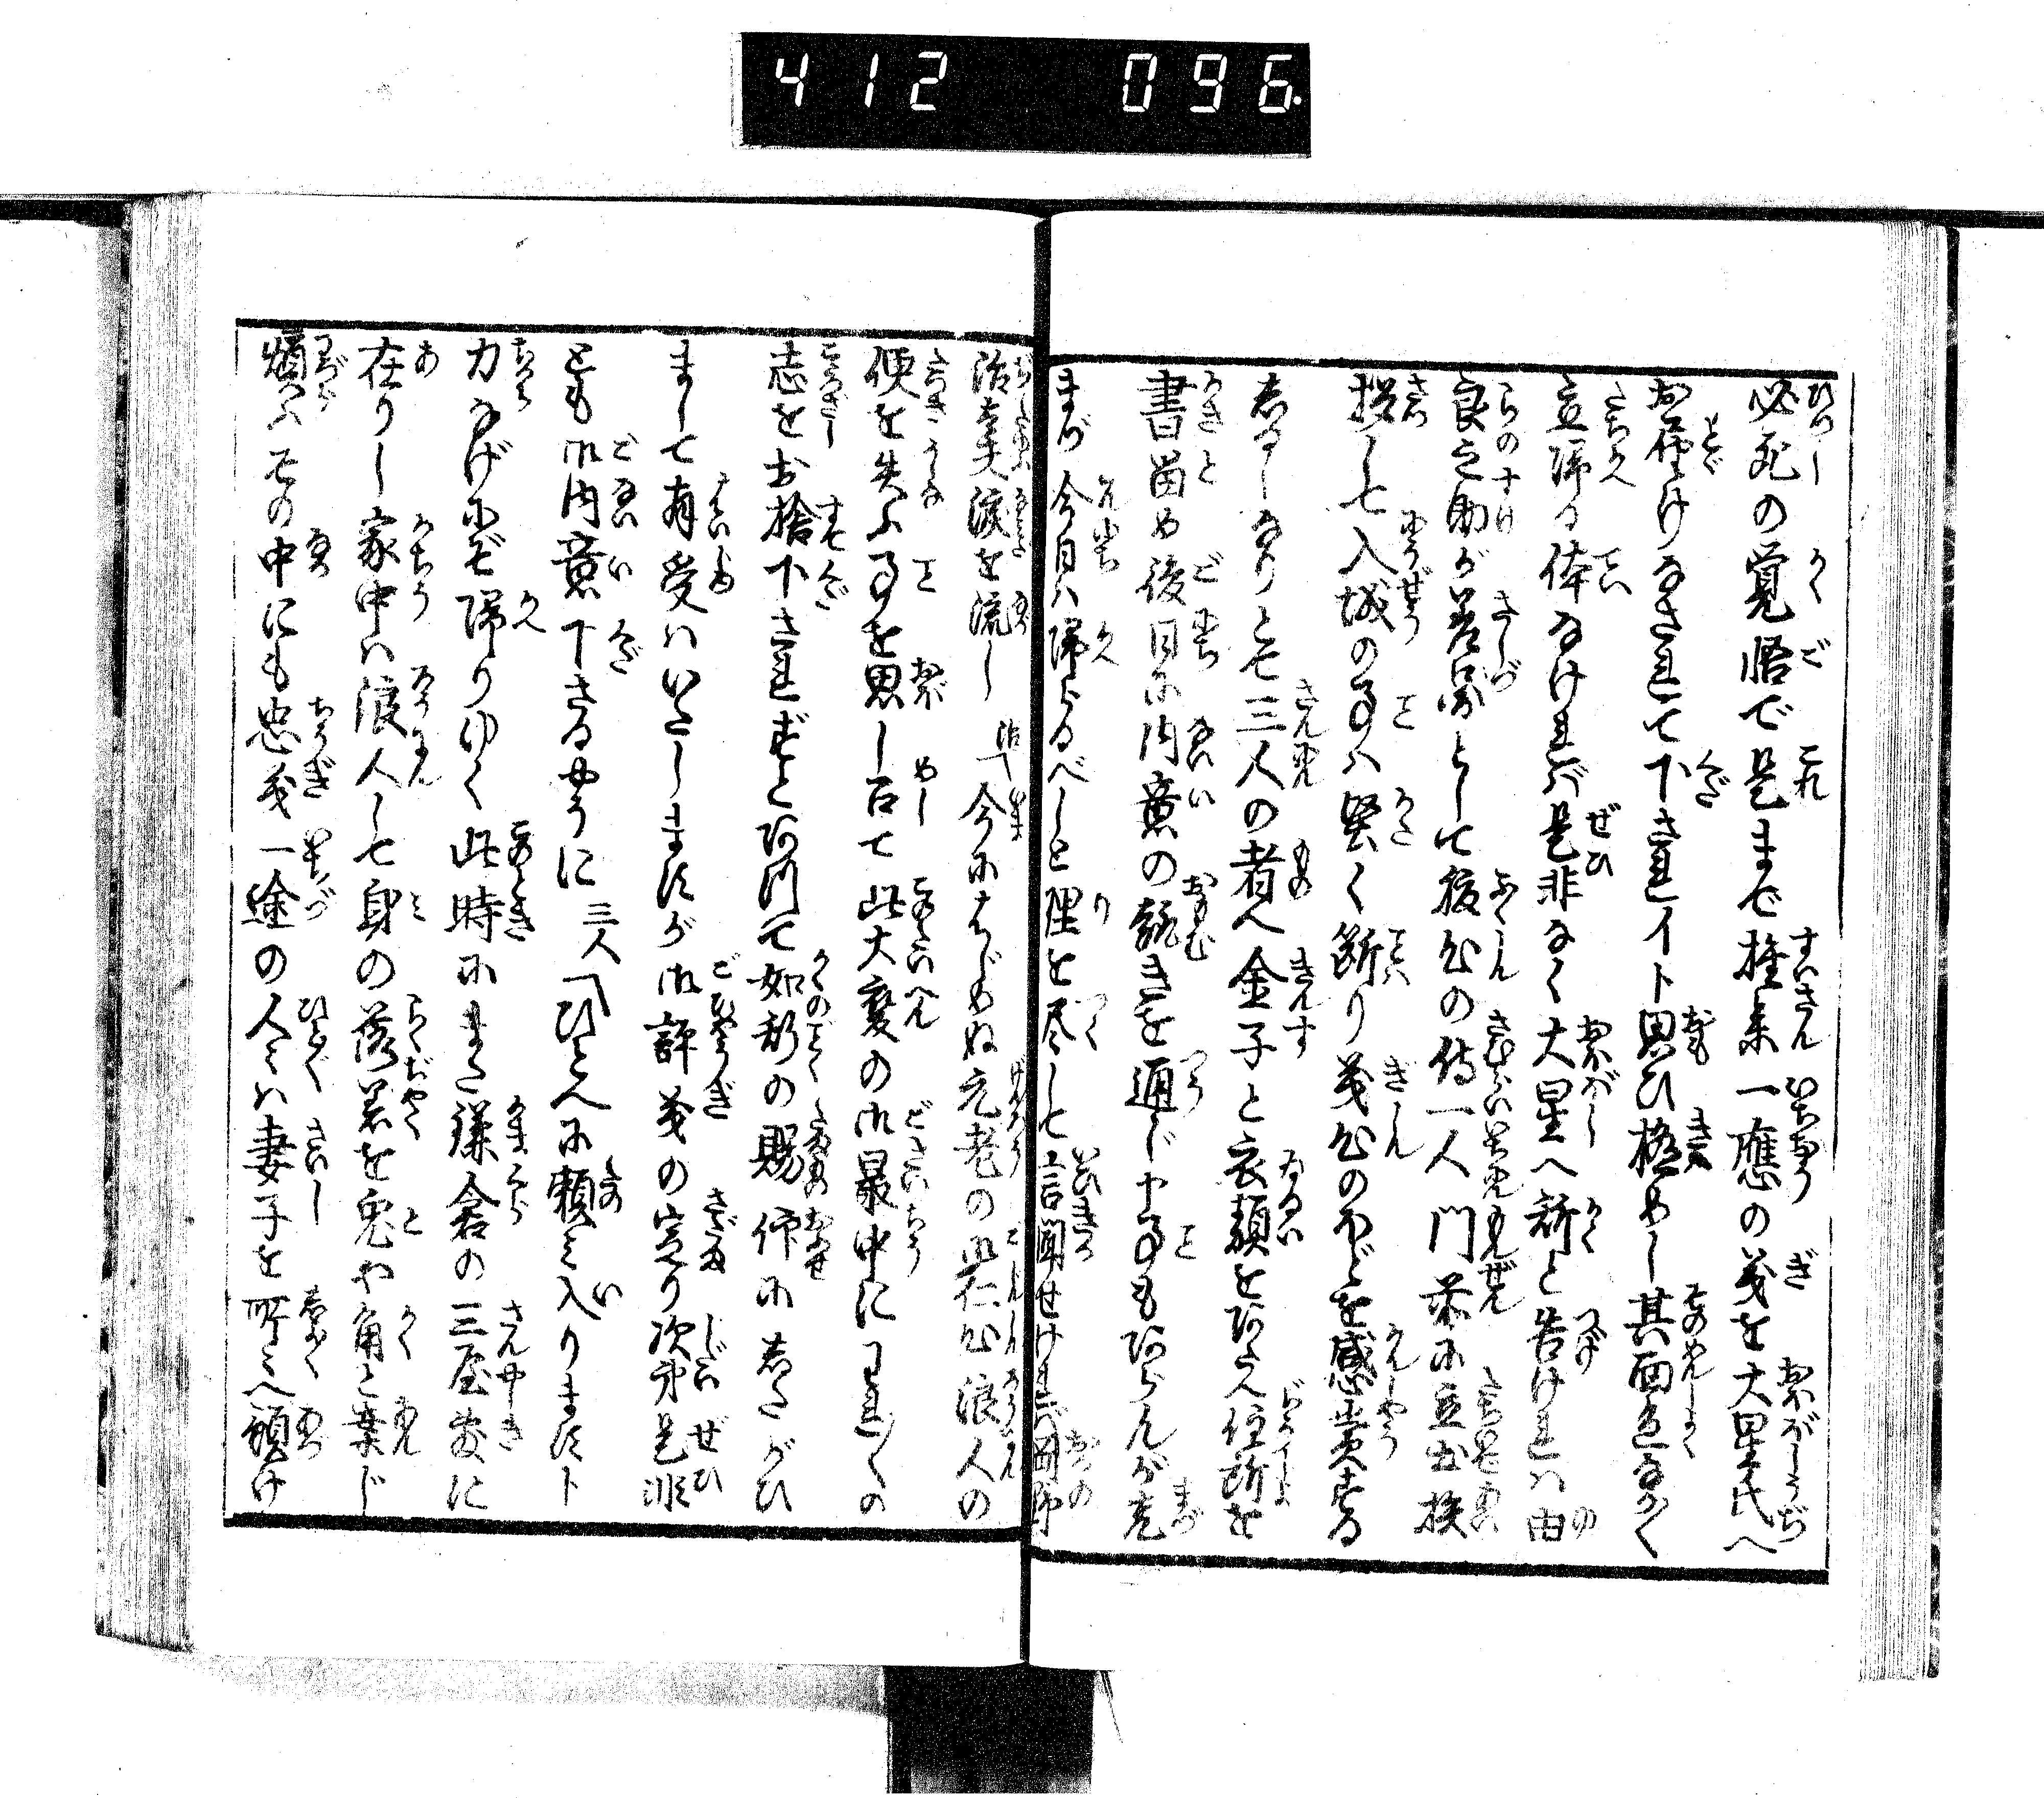 412 096.
必死の覚悟で是まで推参一應の義を大星氏へ
お届けなされて下されイト思ひ極めし其面色なか〳〵
立帰る体なければ是非なく大星へ斯と告ければ由
良之助が差図として後＿の侍一人門前に立出挨
拶して入城の事ハ堅く断り義心のほどを感賞する
志るしなりとて三人の者へ金子と衣類をあたへ住所を
書留め後日に内意の趣きを通じ申事もあらんが先
まづ今日ハ帰るべしと理を尽して言聞せければ岡野
治太夫涙を流し 治「今にはじめぬ元老の御仁心浪人の
便を失ふ事を思し召て此大変の御最中にわれ〳〵の
志をお捨下されずとあつて如斯の賜仰にしたがひ
まして有受ハいたしまするが御評義の定り次第是非
とも御内意下さるやうに 三人「ひとへに頼み入りますト
力なげにぞ帰りゆく此時にまた鎌倉の三屋敷に
在りし家中ハ浪人して身の落着を兎や角と案じ
煩ふその中にも忠義一途の人々ハ妻子を所々へ預け